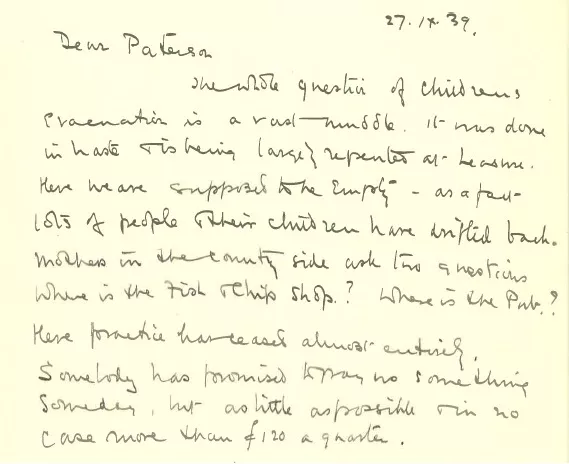 27.IX.39.
Dear Paterson
The whole question of childrens
evacuation is a vast muddle. It was done
in haste & is being largely repented at leasure.
Here we are supposed to be Empty - as a fact
lots of people & their children have drifted back.
Mothers in the county side ask two questions
Where is the Fish & Chip Shop? Where is the Pub.?
Here practice has ceased almost entirely.
Somebody has promised to pay us something
Someday, but as little as possible & in no
case more than £120 a quarter.